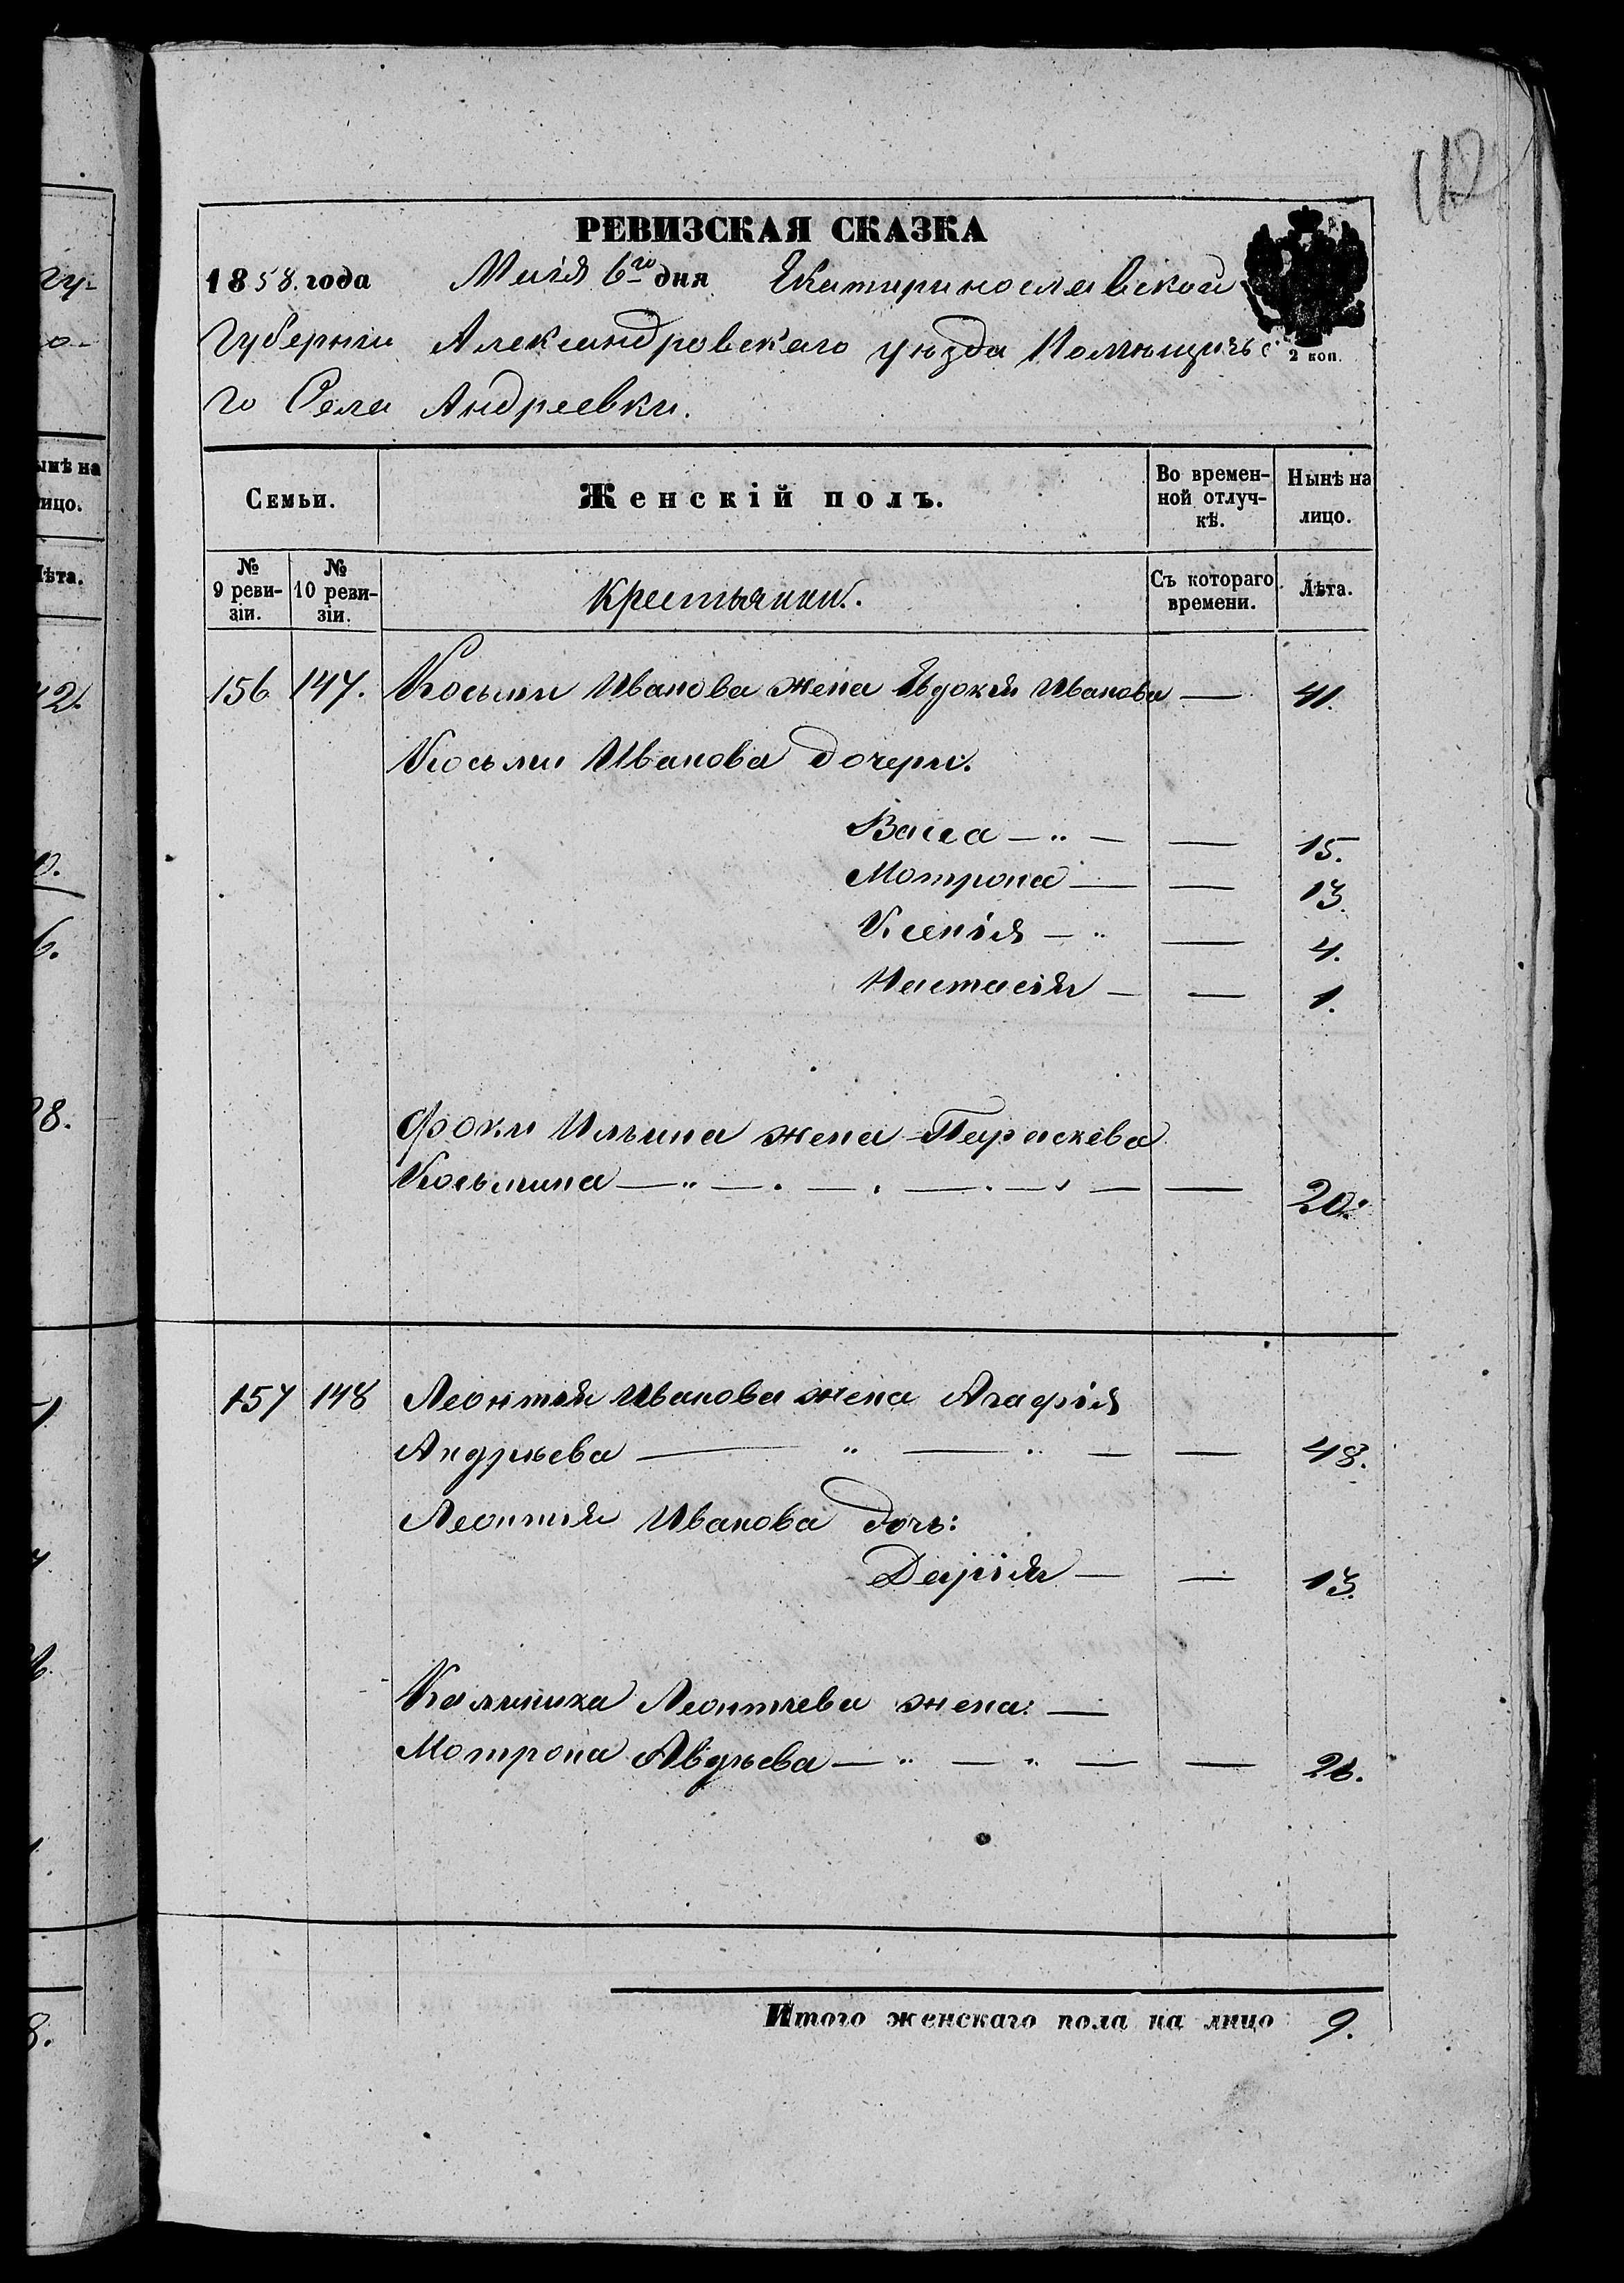 112
РЕВИЗСКАЯ СКАЗКА
1858. года Маія 6го дня Екатеринославской
Губерніи Александровскаго уѣзда Помѣщичьа
2 коп.
го Села Андреевки.
Семьи. Женскій полъ. Во времен-ной отлуч-кѣ. Нынѣ на лицо.
№ 9 реви-зіи. № 10 реви-зіи. Крестьянки. Съ котораго времени. Лѣта.
156 147. Косьмы Иванова жена Евдокія Иванова — 41.
Косьмы Иванова дочери.
Васса — „ — — 15.
Мотрона — — 13.
Ксенія — „ — 4.
Настасія — — 1.
Фоки Ильина жена Параскева
Косьмина — „ — . — . — . — — — 20.
157 148 Леонтія Иванова жена Агафія
Андрѣева — „ — „ — — 48.
Леонтія Иванова дочь:
Дарія — — 13.
Калиника Леонтіева жена: —
Мотрона Авдѣева — „ — „ — — 26.
Итого женскаго пола на лицо 9.
гу-
о-
ынѣ на
ицо.
ѣта.
42.
0.
6.
28.
8.